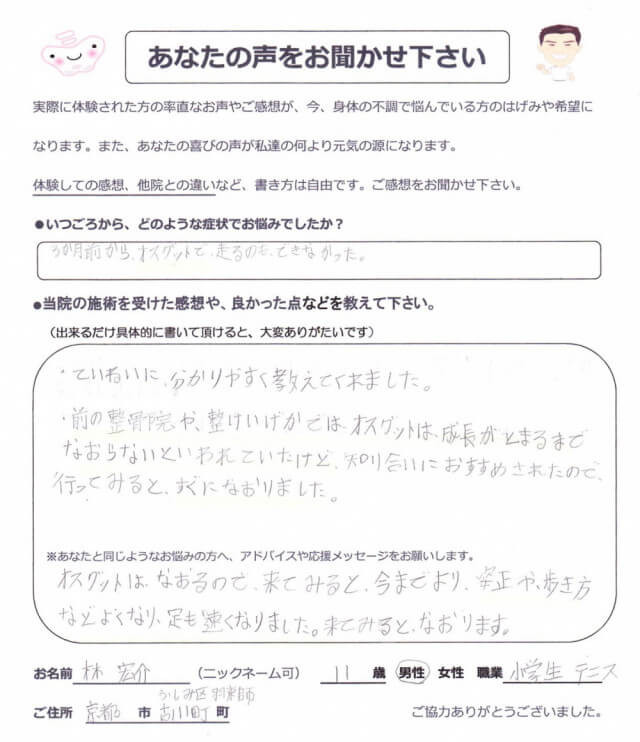 あなたの声をお聞かせ下さい
実際に体験された方の率直なお声やご感想が、今、身体の不調で悩んでいる方のはげみや希望に
なります。また、あなたの喜びの声が私達の何より元気の源になります。
体験しての感想、他院との違いなど、書き方は自由です。ご感想をお聞かせ下さい。
●いつごろから、どのような症状でお悩みでしたか？
3か月前から、オスグットで、走るのも、できなかった。
●当院の施術を受けた感想や、良かった点などを教えて下さい。
（出来るだけ具体的に書いて頂けると、大変ありがたいです）
・ていねいに、分かりやすく教えてくれました。
・前の整骨院や、整けいげかでは、オスグットは、成長がとまるまで
なおらないといわれていたけど、知り合いにおすすめされたので、
行ってみると、すぐになおりました。
※あなたと同じようなお悩みの方へ、アドバイスや応援メッセージをお願いします。
オスグットは、なおるので、来てみると、今までより、姿正や、歩き方
などよくなり、足も速くなりました。来てみると、なおります。
お名前 林 宏介 （ニックネーム可） 11 歳 男性 女性 職業 小学生 テニス
ふしみ区 羽束師
ご住所 京都 市 古川町 町 ご協力ありがとうございました。